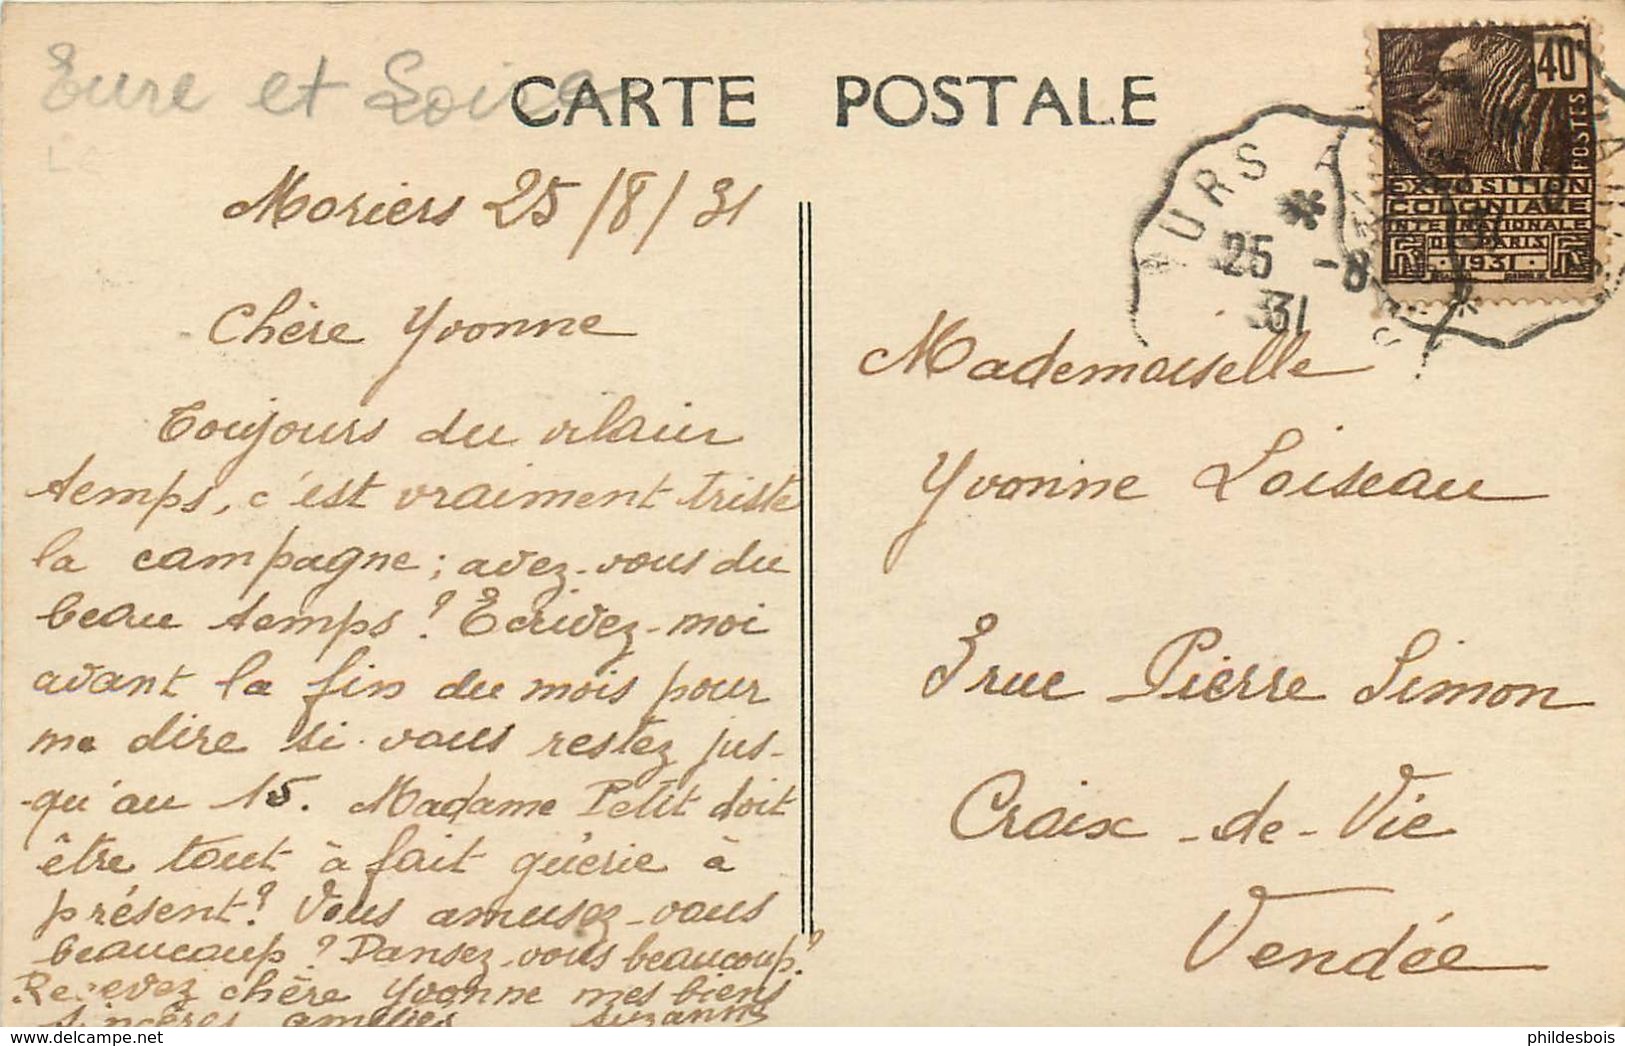 Eure et Loire
CARTE POSTALE
40c
POSTES
EXPOSITION
COLONIALE
INTERNATIONALE
DE PARIS
1931
TOURS
25 -8
31
Moriers 25/8/31
Chère Yvonne
Toujours du vilain
temps, c'est vraiment triste
la campagne; avez-vous du
beau temps? Ecrivez-moi
avant la fin du mois pour
me dire si vous restez jus-
qu'au 15. Madame Petit doit
être tout à fait guérie à
présent? Vous amusez-vous
beaucoup? Dansez-vous beaucoup?
Recevez chère Yvonne mes biens
sincères amitiés Suzanne
Mademoiselle
Yvonne Loiseau
3 rue Pierre Simon
Croix-de-Vie
Vendée
www.delcampe.net
phildesbois